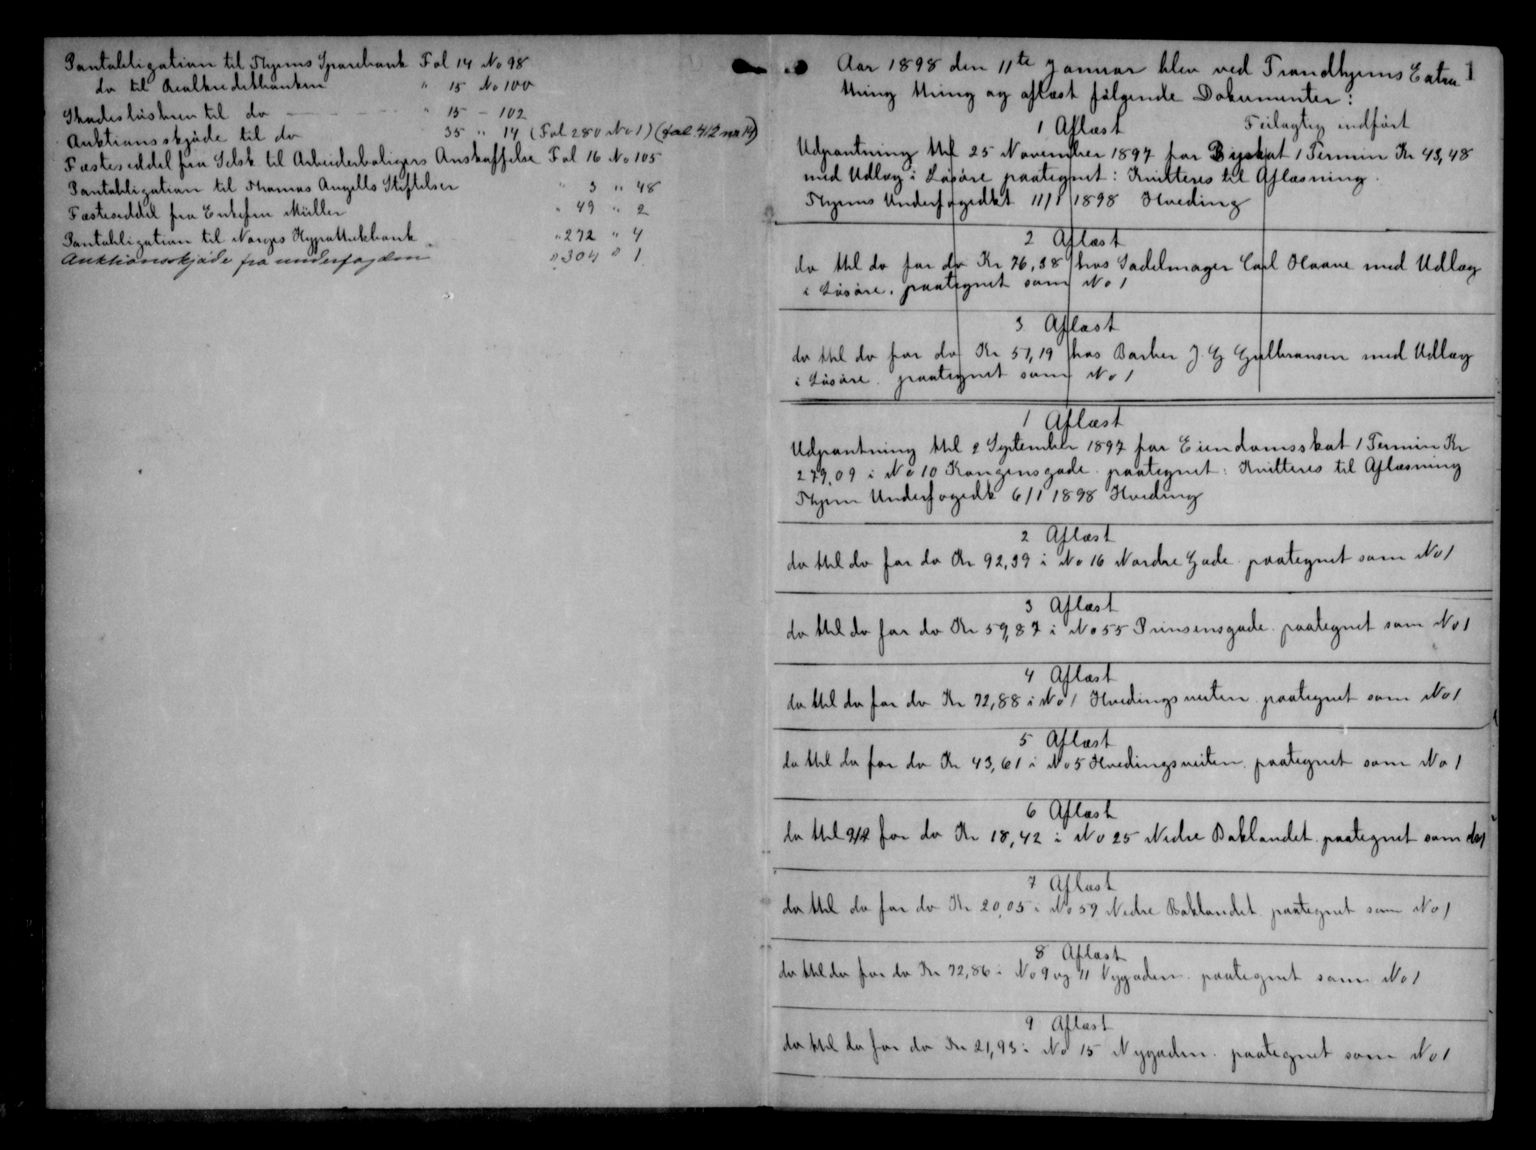 Pantobligation til Thjems Sparebank Fol 14 No 98
do til Realkreditbanken " 15 No 100
Skadesløsbrev til do " 15 - 102
Auktionsskjøde til do 35 " 14 (Fol 280 No 1) (fol 412 no 14)
Fæsteseddel fra Selsk til Arbeiderboligers Anskaffelse Fol 16 No 105
Pantobligation til Thomas Angells Stiftelser " 3 " 48
Fæsteseddel fra Enkefru Müller " 49 " 2
Pantobligation til Norges Hypothekbank " 272 " 4
Auktionsskjøde fra underfogden " 304 " 1
1
Aar 1898 den 11te Januar blev ved Trondhjems Extra
thing thing og aflæst følgende Dokumenter:
1 Aflæst Feilagtig indført
Udpantning thl 25 November 1897 for Byskat 1 Termin Kr 43,48
med Udlæg i Løsøre paategnet: Kvitteres til Aflæsning.
Thjems Underfogedkt 11/1 1898 Hveding
2 Aflæst
do thl do for do Kr 76,38 hos Sadelmager Carl Haave med Udlæg
i Løsøre. paategnet som No 1
3 Aflæst
do thl do for do Kr 57,19 hos Barber J. G Gulbransen med Udlæg
i Løsøre. paategnet som No 1
1 Aflæst
Udpantning thl 2 September 1897 for Eiendomsskat 1 Termin Kr
279,09 i No 10 Kongensgade. paategnet: Kvitteres til Aflæsning
Thjem Underfogedk 6/1 1898 Hveding
2 Aflæst
do thl do for do Kr 92,39 i No 16 Nordre Gade. paategnet som No 1
3 Aflæst
do thl do for do Kr 59,87 i No 55 Prinsensgade. paategnet som No 1
4 Aflæst
do thl do for do Kr 72,88 i No 1 Hvedingsveiten. paategnet som No 1
5 Aflæst
do thl do for do Kr 43,61 i No 5 Hvedingsveiten. paategnet som No 1
6 Aflæst
do thl for do Kr 18,42 i No 25 Nedre Baklandet. paategnet som No 1
7 Aflæst
do thl do for do Kr 20,05 i No 59 Nedre Baklandet. paategnet som No 1
8 Aflæst
do thl do for do Kr 72,86 i No 9 og 11 Nygaden. paategnet som No 1
9 Aflæst
do thl do for do Kr 21,93 i No 15 Nygaden. paategnet som No 1